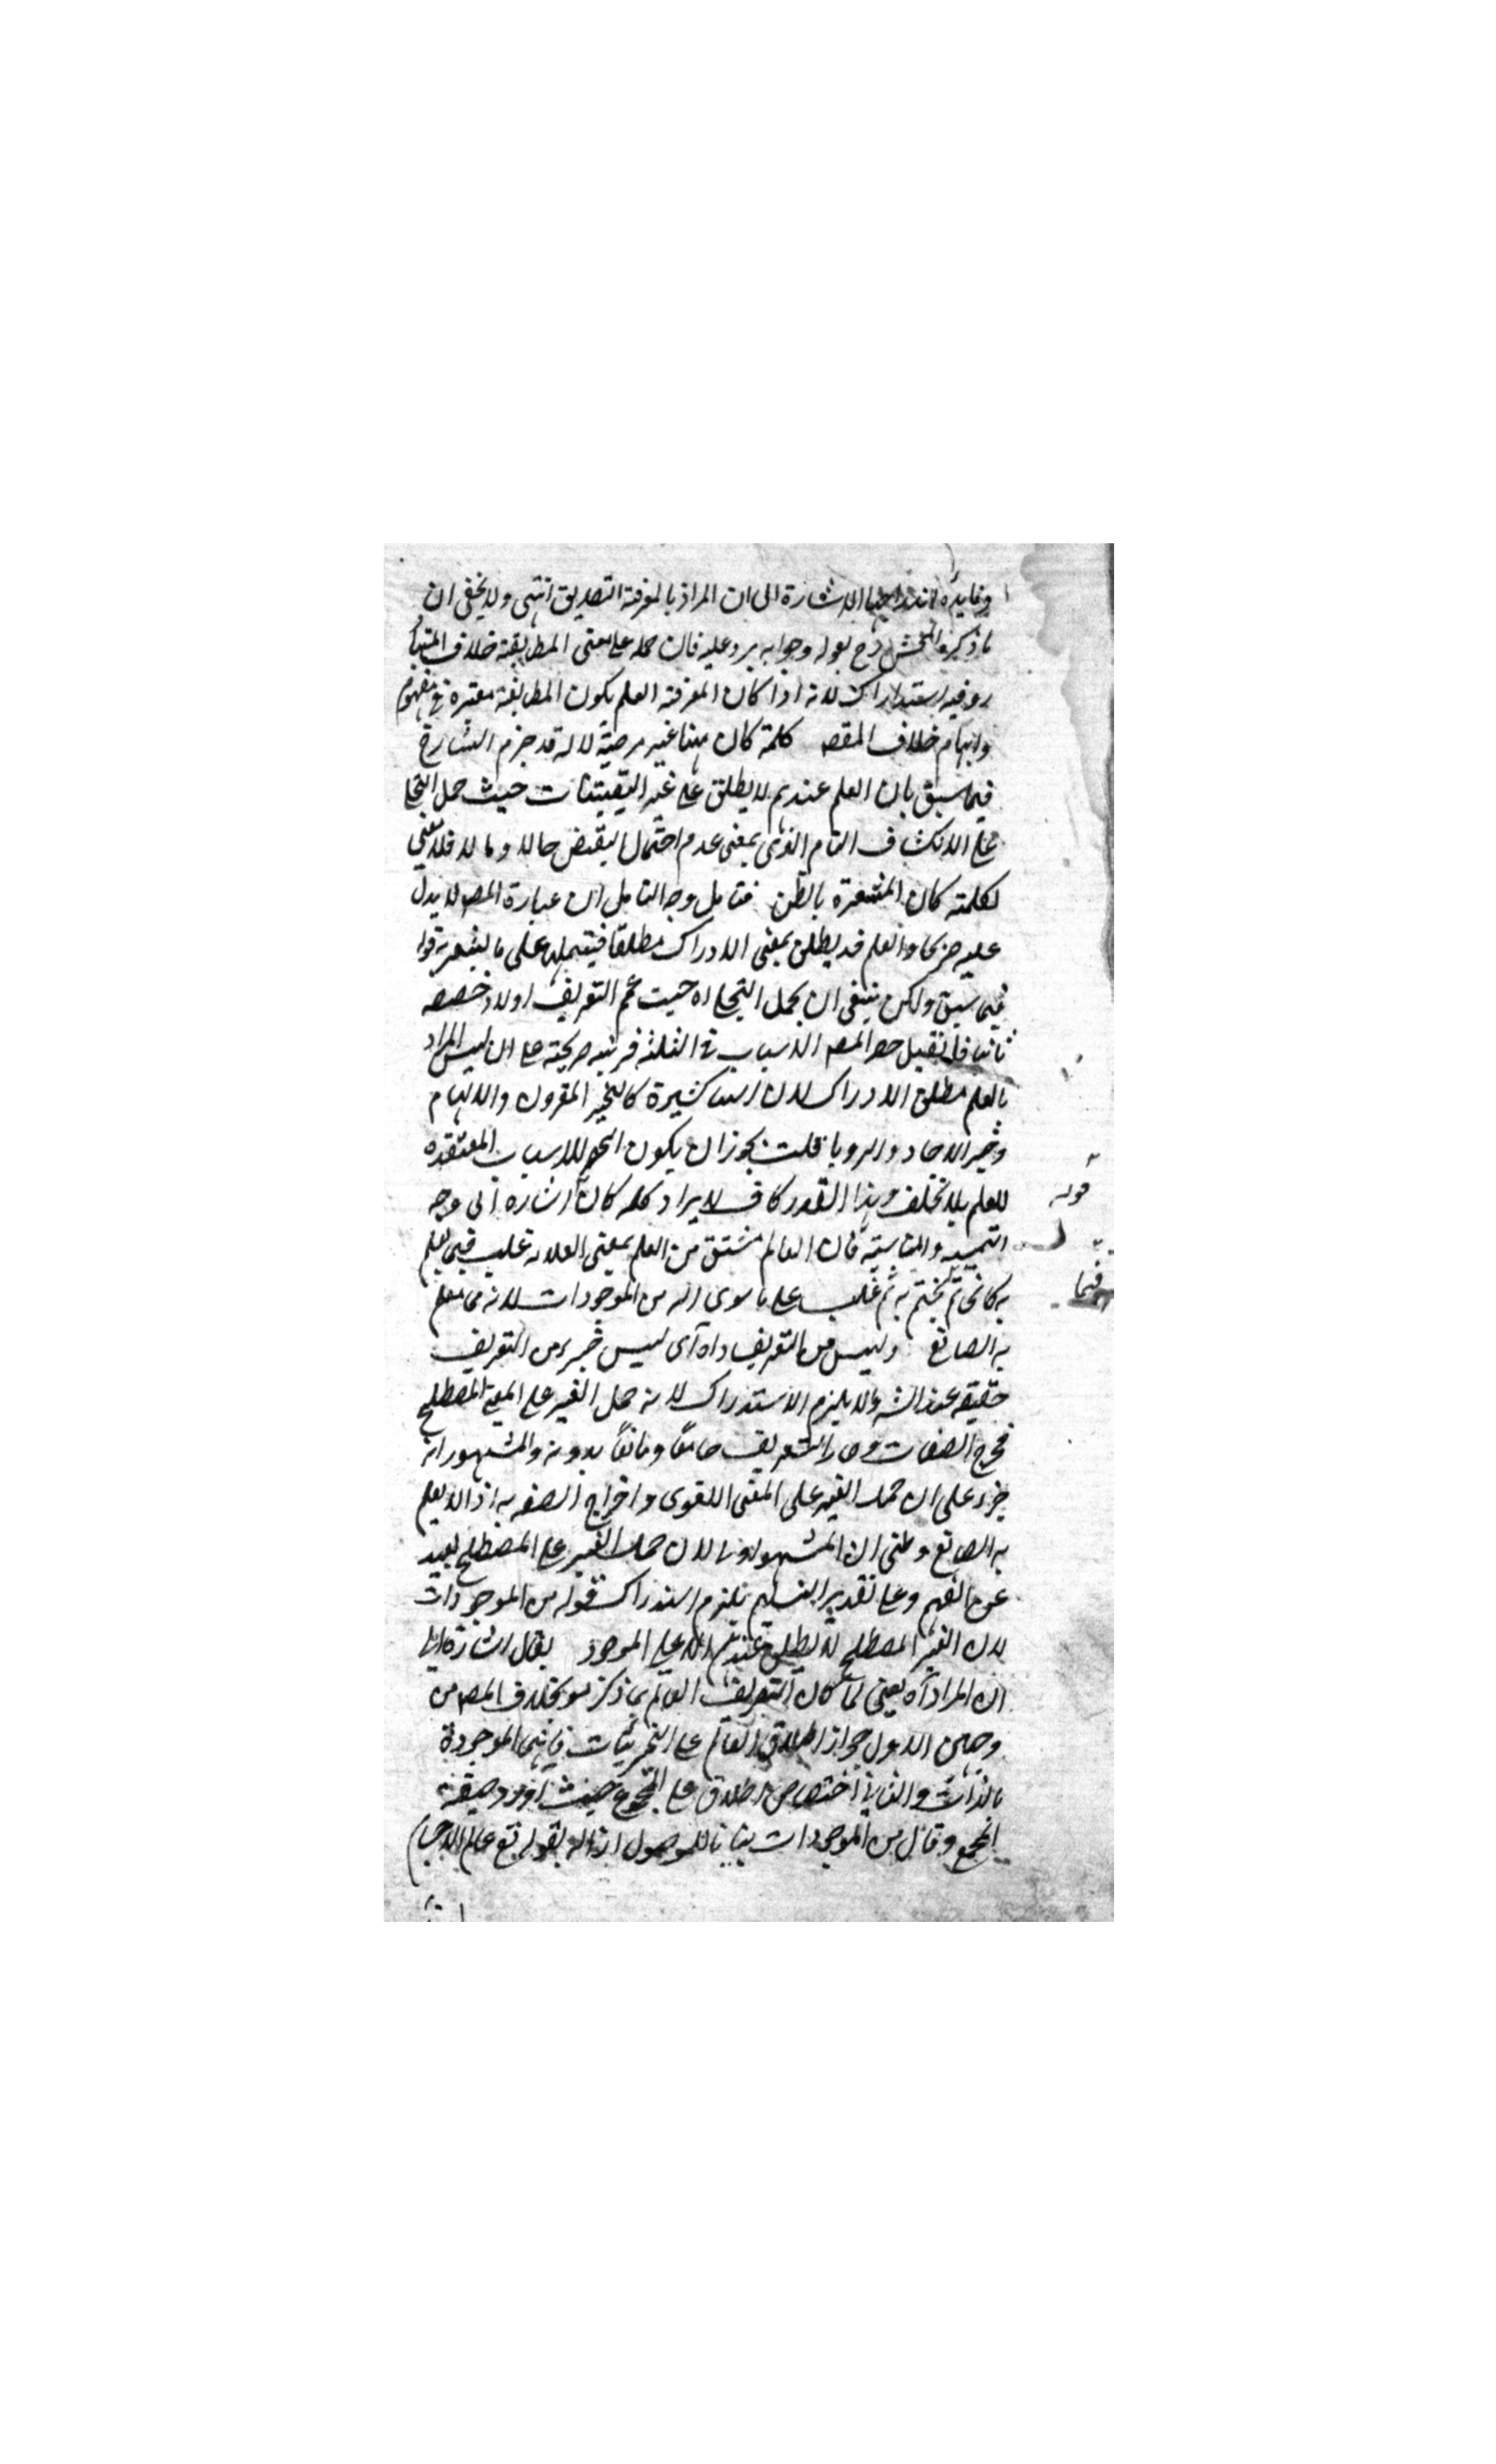 وفايدة الاشارة الى ان المراد بالمعرفة التصديق انتهى ولا يخفى ان
ما ذكره المحشى رح بقوله وجوابه يرد عليه فان حمله على معنى المطابقة خلاف المتبا
در وفيه استدراك لانه اذا كان المعرفة العلم يكون المطابقة معتبرة في مفهومه
وايهام خلاف المقصد كلمة كان ههنا غير مرضية لانه قد جزم الشارح
فيما سبق بان العلم عندهم لا يطلق على غير اليقينيات حيث حمل التجلى
على الانكشاف التام الذى بمعنى عدم احتمال النقيض حالا ومالا فلا معنى
لكلمة كان المشعرة بالظن فتامل وجه التامل ان عبارة المص لا يدل
عليه جزما والعلم قد يطلق بمعنى الادراك مطلقا على ما يشعر به قوله
فيما سبق ولكن ينبغى ان يحمل التجلى اه حيث عمم التعريف اولا وخصصه
ثانيا فان قيل حصر المص الاسباب في الثلثة قرينة صريحة على ان ليس المراد
بالعلم مطلق الادراك لان اسبابه كثيرة كالخبر المقرون والالهام
وخبر الاحاد والرويا قلت يجوز ان يكون الحصر للاسباب المعتقده
للعلم بلا تخلف وهذا القدر كاف لايراد كلمه كان اشاره الى وجه
التسمية والمناسبة فان العالم مشتق من العلم بمعنى العلامة غلب فيما يعلم
به كالخاتم لما يختم به ثم غلب على ما سوى الله من الموجودات لانه مما يعلم
به الصانع وليس من التعريف اه اى ليس جزء من التعريف
حقيقه عند الشه والا يلزم الاستدراك لانه حمل الغير على المعنى المصطلح
فخرج الصفات وصار التعريف جامعا ومانعا بدونه والمشهور انه
جزء على ان حمل الغير على المعنى اللغوى واخراج الصفه به اذ لا يعلم
به الصانع وظنى ان المشهور اولى لان حمل الغير على المصطلح بعيد
عن الفهم وعلى تقدير التسليم يلزم استدراك قوله من الموجودات
لان الغير المصطلح لا يطلق عندهم الا على الموجود يقال اشارة الى
ان المراد آه يعنى لما كان التعريف العالم بما ذكر هو بخلاف المص من
وجهين الاول جواز اطلاق العالم على الجزئيات فانها الموجودة
بالذات والثانى اختصاص اطلاق على المجموع حيث اورد صيغة
الجمع وقال من الموجودات بيانا للموصول ازاله بقوله يقع عالم الاجسام
قوله
فيما